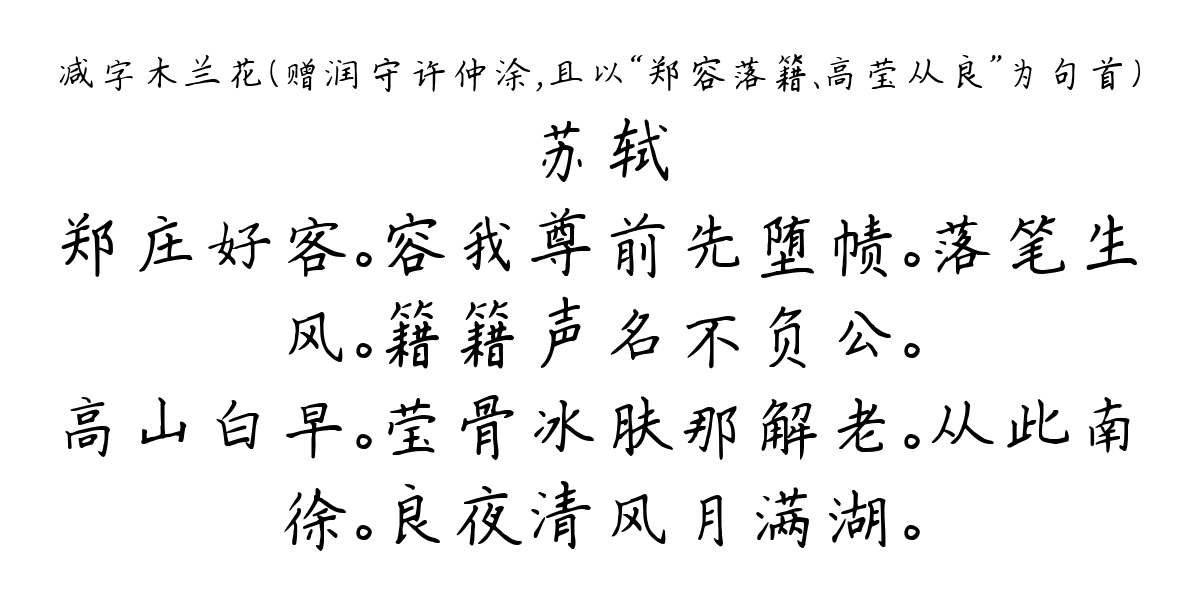 减字木兰花(赠润守许仲涂,且以“郑容落籍、高莹从良”为句首)
苏轼
郑庄好客。容我尊前先堕帻。落笔生
风。籍籍声名不负公。
高山白早。莹骨冰肤那解老。从此南
徐。良夜清风月满湖。